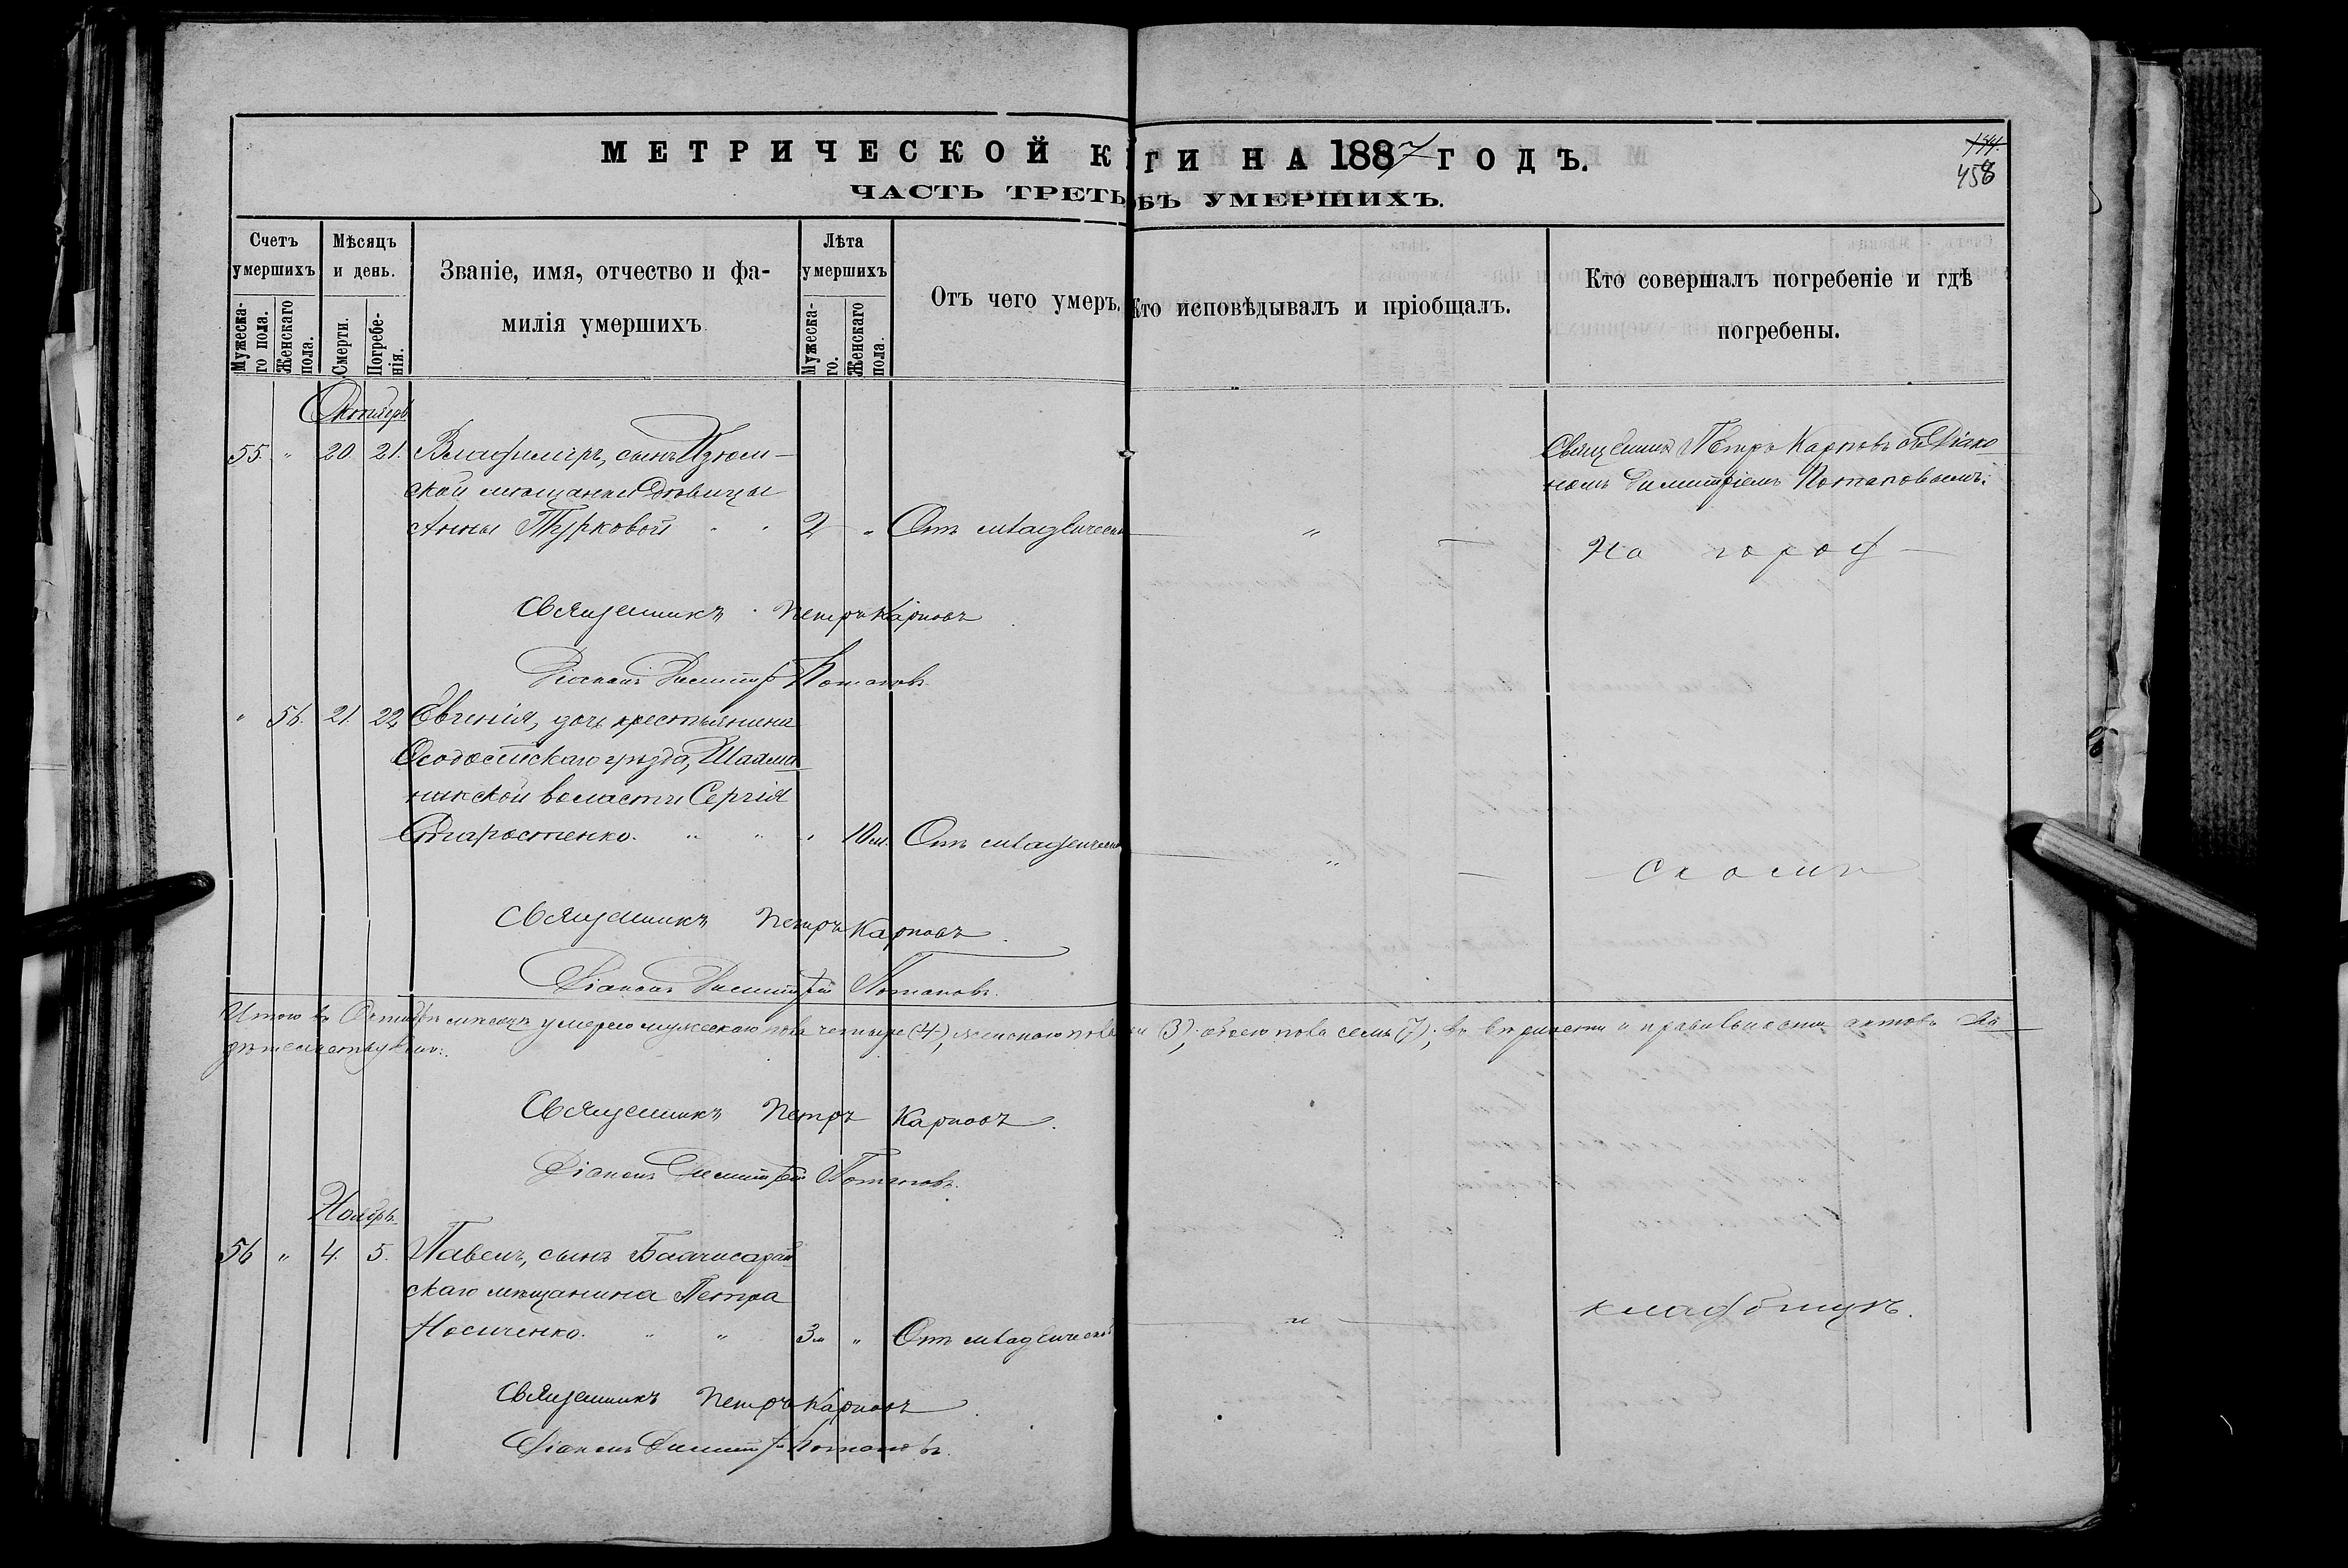 МЕТРИЧЕСКОЙ К ГИ НА 1887 ГОДЪ.
ЧАСТЬ ТРЕТЬ ОБЪ УМЕРШИХЪ.
458
Счетъ умершихъ
Мужеска-
го пола.
Женскаго
пола.
Мѣсяцъ и день.
Смерти.
Погребе-
нія.
Званіе, имя, отчество и фа-
милія умершихъ
Лѣта умершихъ
Мужеска-
го.
Женскаго
пола.
Отъ чего умеръ.
Кто исповѣдывалъ и пріобщалъ.
Кто совершалъ погребеніе и гдѣ
погребены.
Октябрь
55. " 20. 21. Владимиръ, сынъ Изюм-
ской мѣщанки дѣвицы
Анны Турковой " " 2 " Отъ младенческ
Священникъ Петръ Карповъ съ Діако
номъ Димитріемъ Потаповымъ.
На город
Священникъ Петръ Карповъ
Діаконъ Димитрій Потаповъ
" 56. 21. 22 Евгенія, дочь крестьянина
Ѳеодосійскаго уѣзда,
нинской волости Сергія
Старостенко. " " " 10 м. Отъ младенческ
скомъ
Священникъ Петръ Карповъ
Діаконъ Димитрій Потаповъ.
Итого въ Октябрѣ мѣсяцѣ умерло мужескаго пола четыре (4), женскаго пола три (3), обоего пола семь (7); въ вѣрности и правильности актовъ сви
дѣтельствуемъ:
Священникъ Петръ Карповъ.
Діаконъ Димитрій Потаповъ.
Ноябрь.
56 " 4. 5. Павелъ, сынъ Бахчисарай
скаго мѣщанина Петра
Носиченко. " " 3 м " Отъ младенческой
кладбищѣ.
Священникъ Петръ Карповъ
Діаконъ Димитрій Потаповъ.